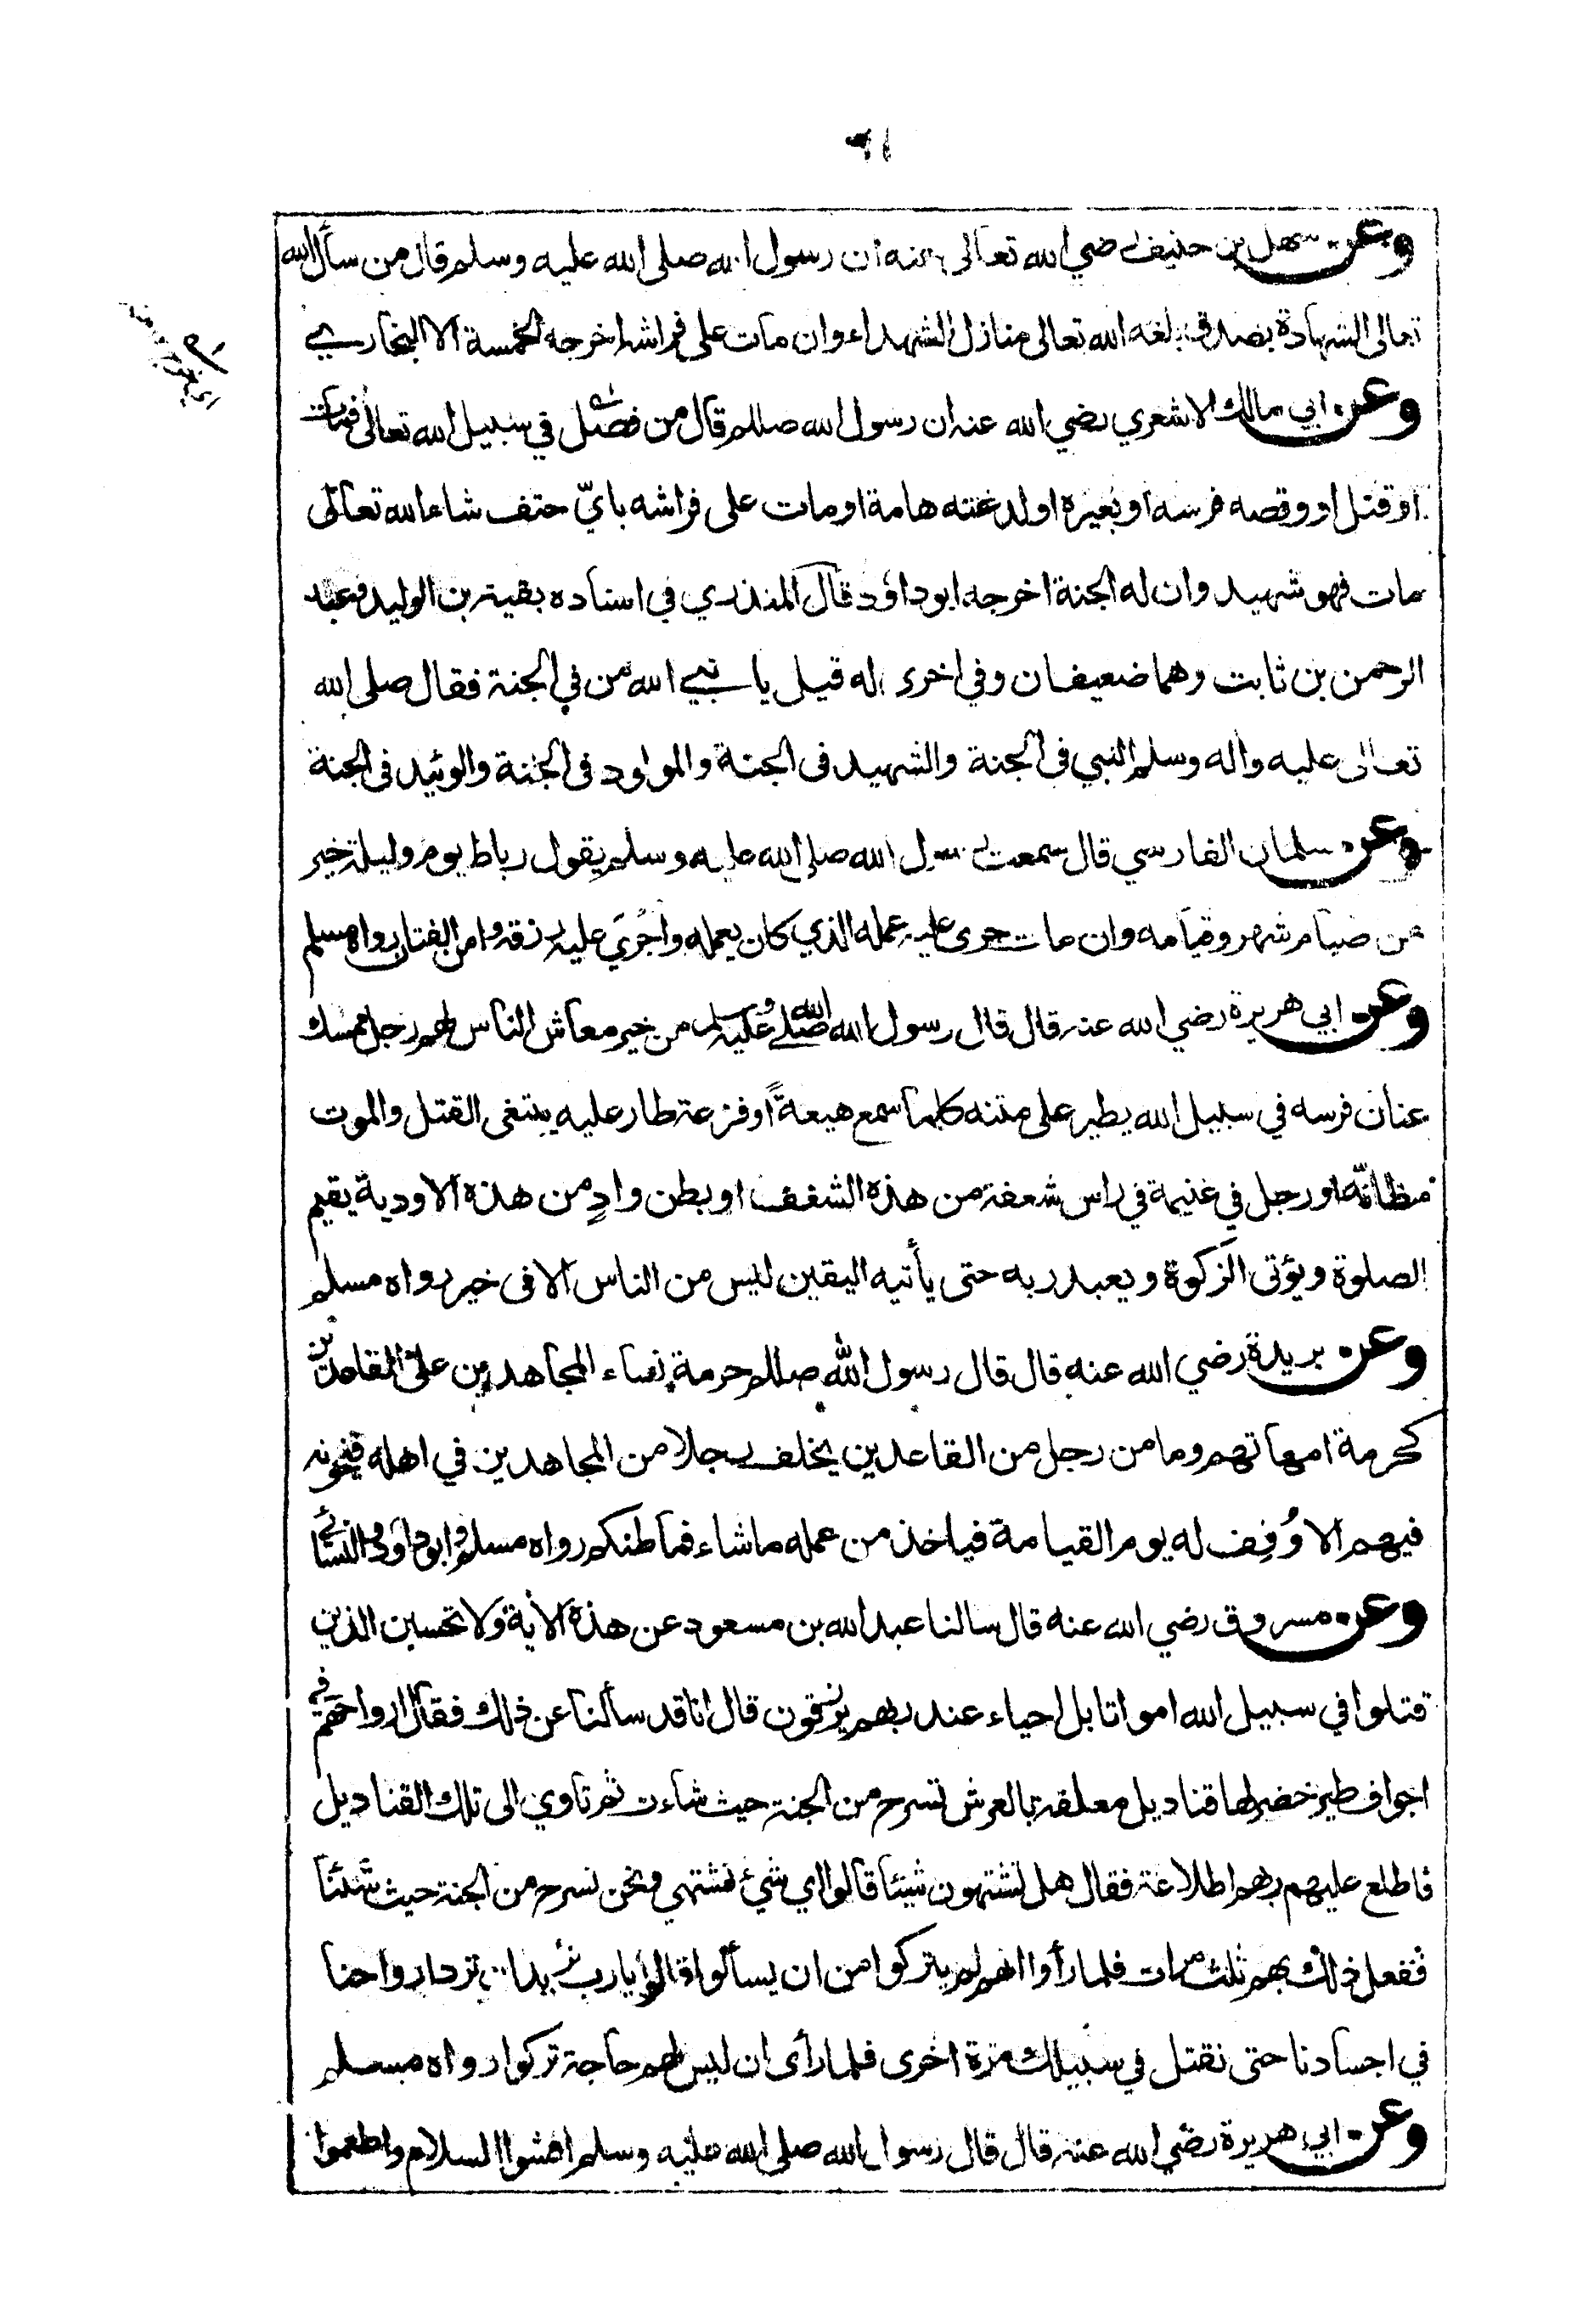 وعن سهل بن حنيف رضي الله تعالى عنه ان رسول الله صلى الله عليه وسلم قال من سأل الله
تعالى الشهادة بصدق بلغه الله تعالى منازل الشهداء وان مات على فراشه اخرجه الخمسة الا البخاري
وعن ابي مالك الاشعري رضي الله عنه ان رسول الله صللم قال من فصل في سبيل الله تعالى فمات
او قتل او وقصه فرسه او بعيره او لدغته هامة او مات على فراشه بايّ حتف شاء الله تعالى
مات فهو شهيد وان له الجنة اخرجه ابو داؤد قال المنذري في اسناده بقية بن الوليد وعبد
الرحمن بن ثابت وهما ضعيفان وفي اخرى له قيل يا نبي الله من في الجنة فقال صلى الله
تعالى عليه واله وسلم النبي في الجنة والشهيد في الجنة والمولود في الجنة والوئيد في الجنة
وعن سلمان الفارسي قال سمعت رسول الله صلى الله عليه وسلم يقول رباط يوم وليلة خير
من صيام شهر وقيامه وان مات جرى عليه عمله الذي كان يعمله واجُريَ عليه رزقه وامن الفتان رواه مسلم
وعن ابي هريرة رضي الله عنه قال قال رسول الله صلى الله عليه وسلم من خير معاش الناس لهم رجل ممسك
عنان فرسه في سبيل الله يطير على متنه كلما سمع هيعةً او فزعة طار عليه يبتغى القتل والموت
مظانّه او رجل في غنيمة في راس شعفة من هذه الشعف او بطن وادٍ من هذه الاودية يقيم
الصلوة ويؤتى الزكوة ويعبد ربه حتى يأتيه اليقين ليس من الناس الا في خير رواه مسلم
وعن بريدة رضي الله عنه قال قال رسول الله صللم حرمة نساء المجاهدين على القاعدين
كحرمة امهاتهم وما من رجل من القاعدين يخلف رجلا من المجاهدين في اهله فيخونه
فيهم الا وُقِف له يوم القيامة فياخذ من عمله ما شاء فما ظنكم رواه مسلم وابو داود والنسائي
وعن مسروق رضي الله عنه قال سالنا عبد الله بن مسعود عن هذه الأية ولا تحسبن الذين
قتلوا في سبيل الله امواتا بل احياء عند ربهم يرزقون قال انا قد سألنا عن ذلك فقال ارواحهم في
اجواف طير خضر لها قناديل معلقة بالعرش تسرح من الجنة حيث شاءت ثم تاوي الى تلك القناديل
فاطلع عليهم ربهم اطلاعة فقال هل تشتهون شيئا قالوا اي شيء نشتهي ونحن نسرح من الجنة حيث شئنا
ففعل ذلك بهم ثلث مرات فلما رأوا انهم لم يتركوا من ان يسألوا قالوا يارب نريد ان ترد ارواحنا
في اجسادنا حتى نقتل في سبيلك مرة اخرى فلما رأى ان ليس لهم حاجة تركوا رواه مسلم
وعن ابي هريرة رضي الله عنه قال قال رسول الله صلى الله عليه وسلم افشوا السلام واطعموا